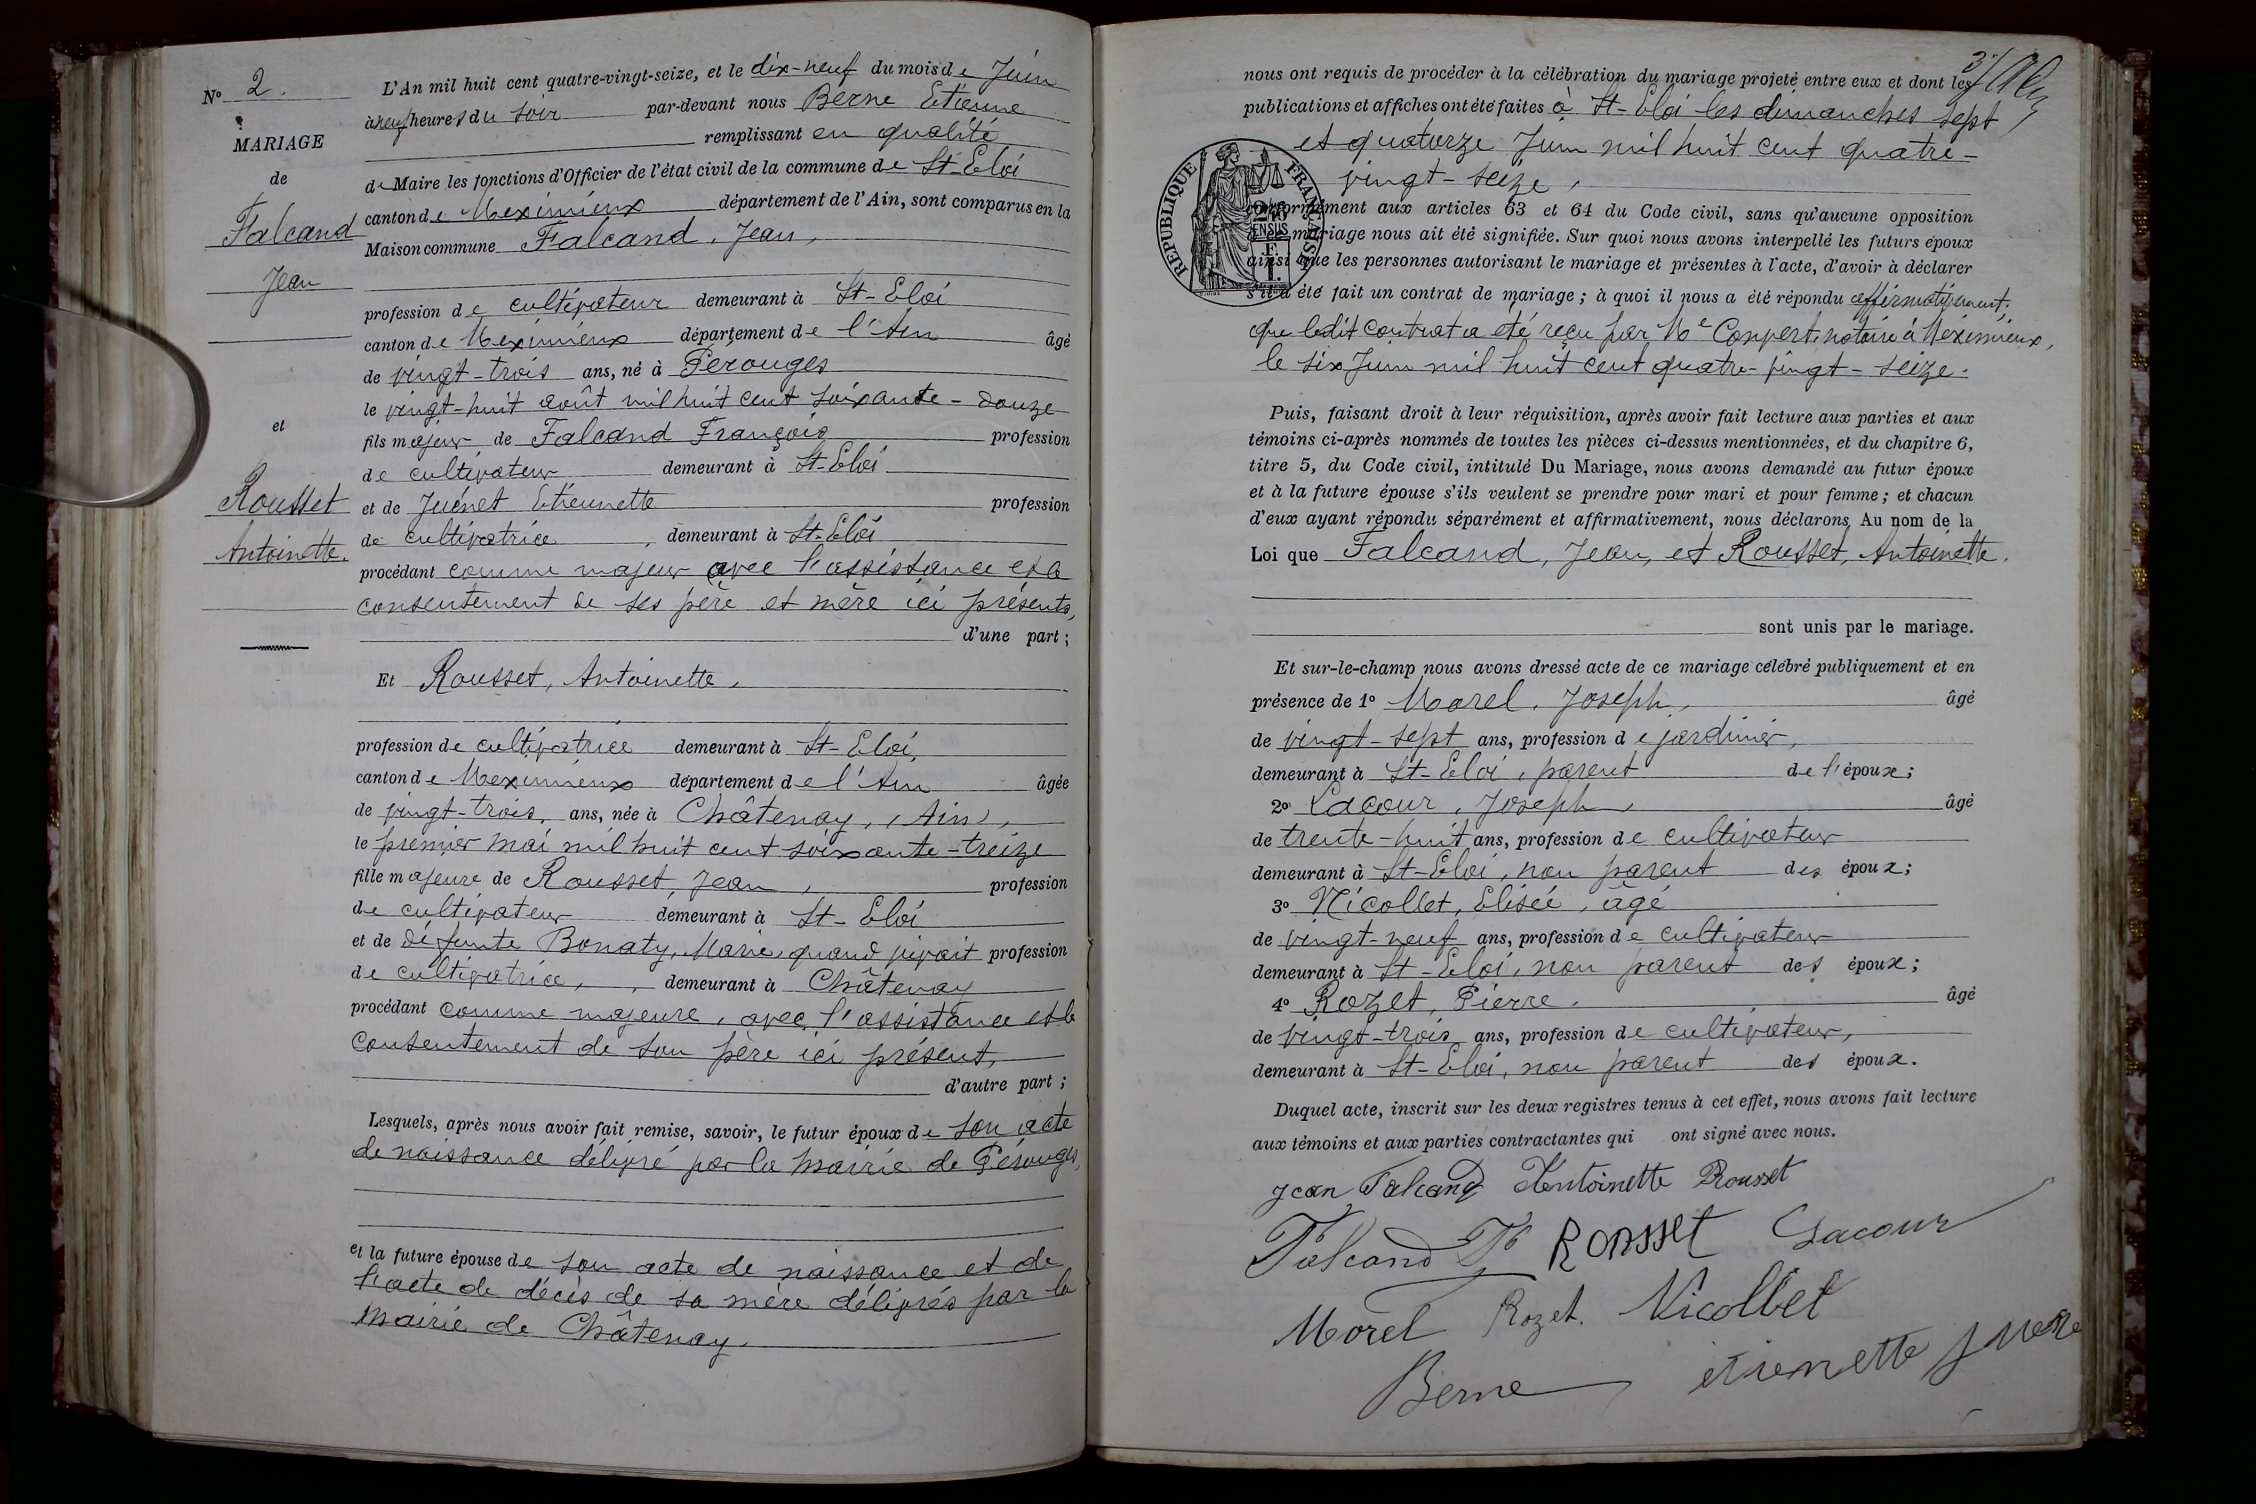 N° 2.
MARIAGE
de
Falcand
Jean
et
Rousset
Antoinette.
L'An mil huit cent quatre-vingt-seize, et le dix-neuf du mois de Juin
à neuf heures du soir par-devant nous Berne Etienne
remplissant en qualité
de Maire les fonctions d'Officier de l'état civil de la commune de St-Eloi
canton de Meximieux département de l'Ain, sont comparus en la
Maison commune Falcand, Jean,
profession de cultivateur demeurant à St-Eloi
canton de Meximieux département de l'Ain âgé
de vingt-trois ans, né à Pérouges
le vingt-huit août mil huit cent soixante-douze
fils majeur de Falcand François profession
de cultivateur demeurant à St-Eloi
et de Juénet Etiennette profession
de cultivatrice, demeurant à St-Eloi
procédant comme majeur avec l'assistance et le
consentement de ses père et mère ici présents,
d'une part;
Et Rousset, Antoinette,
profession de cultivatrice demeurant à St-Eloi,
canton de Meximieux département de l'Ain âgée
de vingt-trois, ans, née à Châtenay, (Ain),
le premier mai mil huit cent soixante-treize
fille majeure de Rousset, Jean, profession
de cultivateur demeurant à St-Eloi
et de défunte Bonaty, Marie, quand vivait profession
de cultivatrice, demeurant à Châtenay
procédant comme majeure, avec l'assistance et le
consentement de son père ici présent,
d'autre part;
Lesquels, après nous avoir fait remise, savoir, le futur époux de son acte
de naissance délivré par la mairie de Pérouges,
et la future épouse de son acte de naissance et de
l'acte de décès de sa mère délivrés par la
mairie de Châtenay.
nous ont requis de procéder à la célébration du mariage projeté entre eux et dont les
publications et affiches ont été faites à St-Eloi les dimanches sept
et quatorze Juin mil huit cent quatre-
vingt-seize,
RÉPUBLIQUE FRANÇAISE
conformément aux articles 63 et 64 du Code civil, sans qu'aucune opposition
mariage nous ait été signifiée. Sur quoi nous avons interpellé les futurs époux
ainsi que les personnes autorisant le mariage et présentes à l'acte, d'avoir à déclarer
s'il a été fait un contrat de mariage; à quoi il nous a été répondu affirmativement,
que ledit contrat a été reçu par Me Convert, notaire à Méximieux,
le six Juin mil huit cent quatre-vingt-seize.
Puis, faisant droit à leur réquisition, après avoir fait lecture aux parties et aux
témoins ci-après nommés de toutes les pièces ci-dessus mentionnées, et du chapitre 6,
titre 5, du Code civil, intitulé Du Mariage, nous avons demandé au futur époux
et à la future épouse s'ils veulent se prendre pour mari et pour femme; et chacun
d'eux ayant répondu séparément et affirmativement, nous déclarons Au nom de la
Loi que Falcand, Jean, et Rousset, Antoinette,
sont unis par le mariage.
Et sur-le-champ nous avons dressé acte de ce mariage célébré publiquement et en
présence de 1° Morel, Joseph, âgé
de vingt-sept ans, profession de jardinier,
demeurant à St-Eloi, parent de l'époux;
2° Lacour, Joseph, âgé
de trente-huit ans, profession de cultivateur
demeurant à St-Eloi, non parent des époux;
3° Nicollet, Elisée, âgé
de vingt-neuf ans, profession de cultivateur
demeurant à St-Eloi, non parent des époux;
4° Rozet, Pierre, âgé
de vingt-trois ans, profession de cultivateur,
demeurant à St-Eloi, non parent des époux.
Duquel acte, inscrit sur les deux registres tenus à cet effet, nous avons fait lecture
aux témoins et aux parties contractantes qui ont signé avec nous.
Jean Falcand Antoinette Rousset
Falcand Rousset Lacour
Morel Rozet. Nicollet
Berne etienette